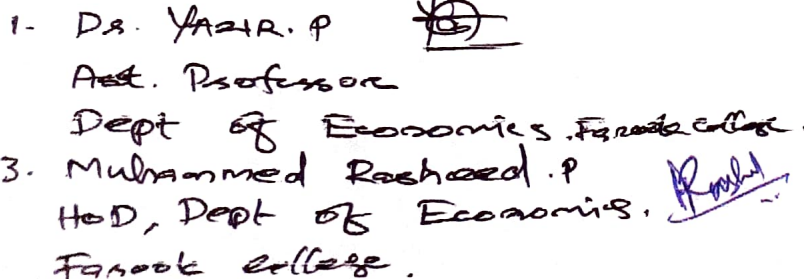 1- Dr. YAZIR. P
Asst. Professor
Dept of Economics, Farook college.
3. Muhammed Rasheed. P
HoD, Dept of Economics.
Farook college.